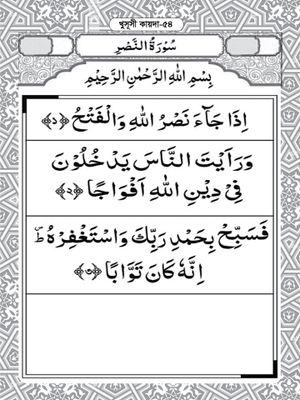 খুসূসী কায়দা-৫৪
سُوْرَةُ النَّصْرِ
بِسْمِ اللهِ الرَّحْمٰنِ الرَّحِيْمِ
اِذَا جَآءَ نَصْرُ اللهِ وَالْفَتْحُ ﴿১﴾
وَرَاَيْتَ النَّاسَ يَدْخُلُوْنَ
فِيْ دِيْنِ اللهِ اَفْوَاجًا ﴿২﴾
فَسَبِّحْ بِحَمْدِ رَبِّكَ وَاسْتَغْفِرْهُ ؕ
اِنَّهٗ كَانَ تَوَّابًا ﴿৩﴾